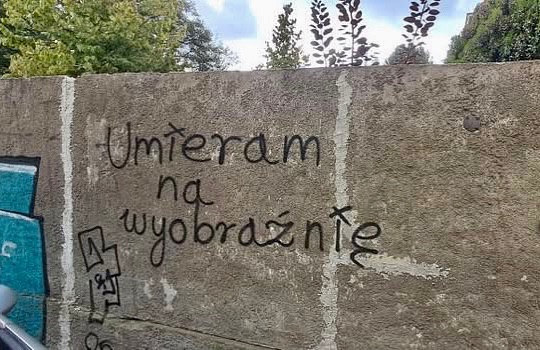 Umieram
na
wyobraźnię